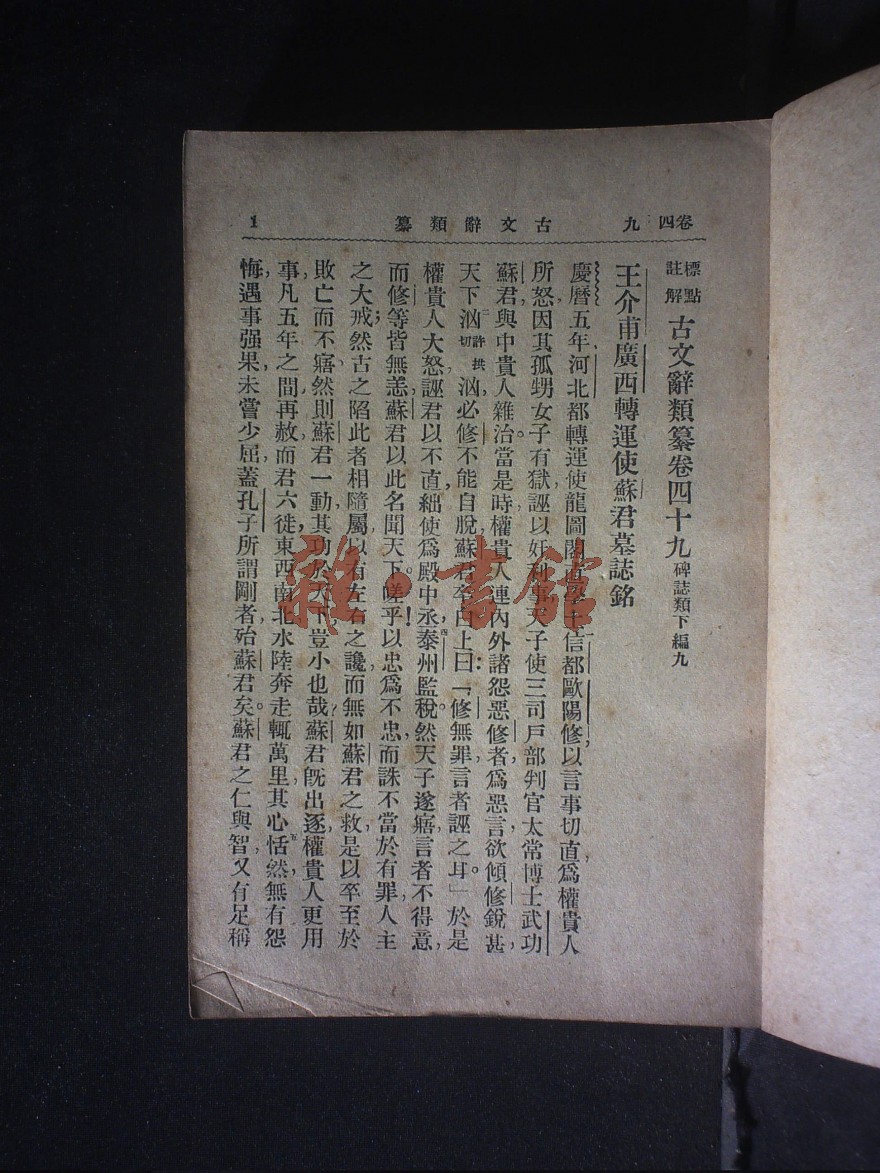 卷四九　古文辭類纂　1
標點註解　古文辭類纂卷四十九　碑誌類下編九
王介甫廣西轉運使蘇君墓誌銘
慶曆五年，河北都轉運使龍圖閣直學士信都歐陽修，以言事切直，爲權貴人
所怒，因其孤甥女子有獄，誣以奸利事，天子使三司戶部判官太常博士武功
蘇君，與中貴人雜治。當是時，權貴人連內外諸怨惡修者，爲惡言，欲傾修，銳甚，
天下洶二許拱切洶，必修不能自脫。蘇君卒白上曰：「修無罪，言者誣之耳。」於是
權貴人大怒，誣君以不直，絀使爲殿中丞，四泰州監稅。然天子遂寤，言者不得意，
而修等皆無恙。蘇君以此名聞天下。嗟乎！以忠爲不忠，而誅不當於有罪，人主
之大戒；然古之陷此者相隨屬，以有左右之讒，而無如蘇君之救，是以卒至於
敗亡而不寤。然則蘇君一動，其功於天下豈小也哉？蘇君旣出逐，權貴人更用
事，凡五年之間，再赦，而君六徙，東西南北，水陸奔走輒萬里，其心恬五然，無有怨
悔。遇事强果，未嘗少屈，蓋孔子所謂剛者，殆蘇君矣。蘇君之仁與智，又有足稱
雜·書館